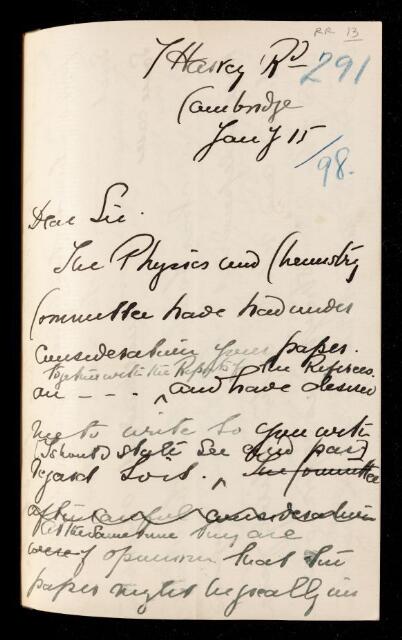 RR 13
7 Harvey Rd 291
Cambridge
Jany 15
/98.
Dear Sir.
The Physics and Chemistry
Committee have had under
consideration your paper.
together with the Reports of the Referees
on - - - - and have desired
me to write to you with
(I should state see
regard to it. The Committee
after careful consideration
At the same time they are
were of opinion that the
paper might be greatly im